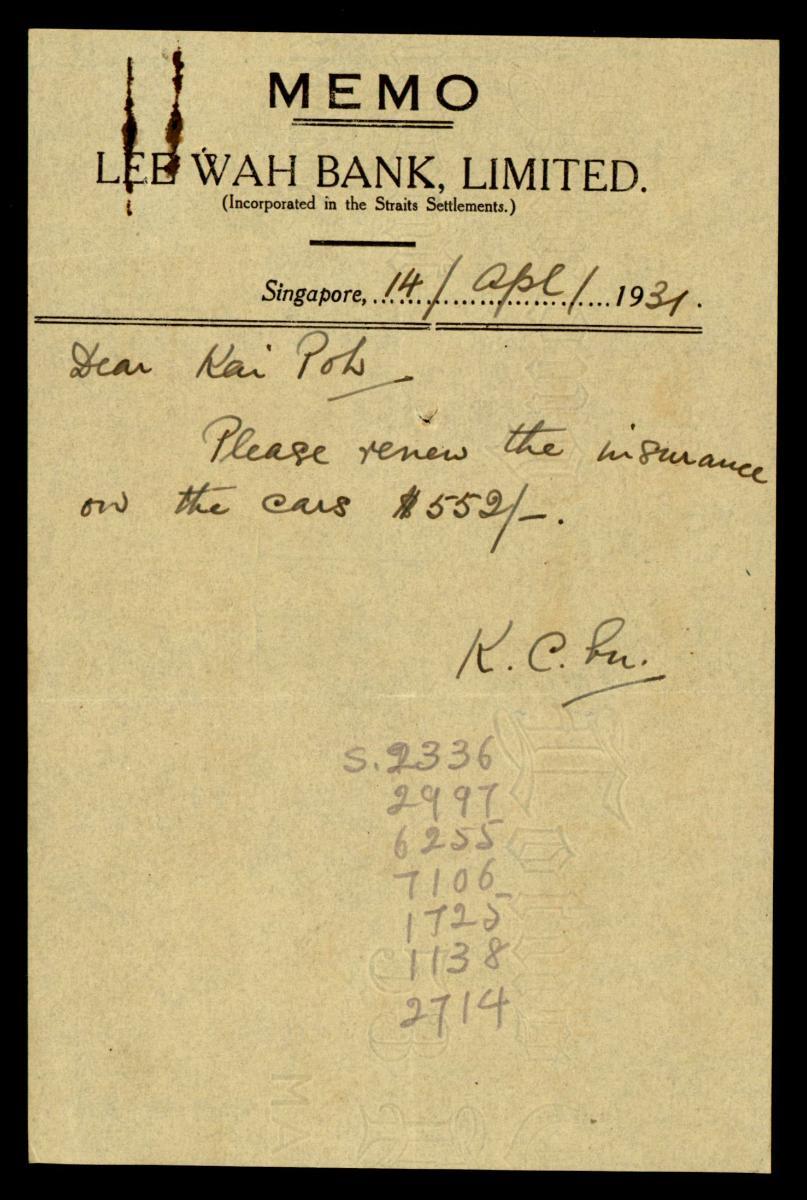 MEMO
LEE WAH BANK, LIMITED.
(Incorporated in the Straits Settlements.)
Singapore, 14/Apl/1931.
Dear Kai Poh
Please renew the insurance
on the cars $552/-.
K. C.
S. 2336
2997
6255
7106
1725
1138
2714